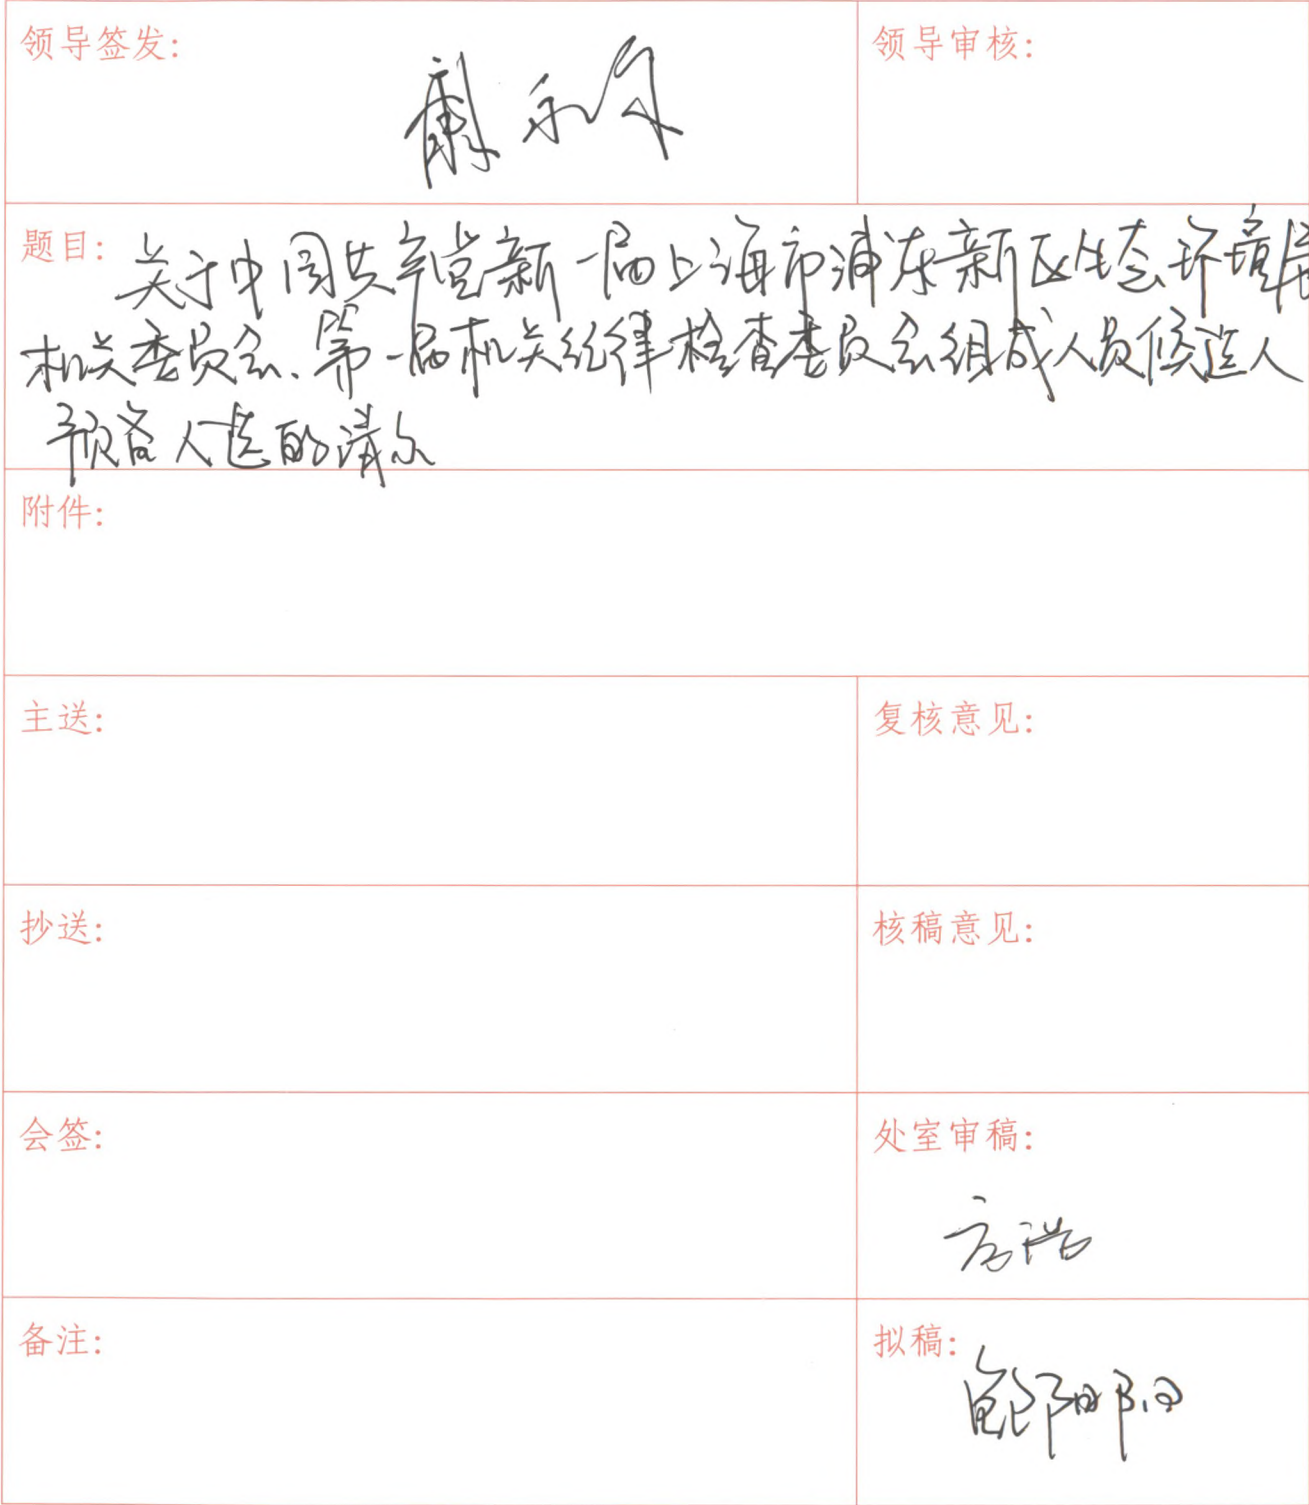 领导签发:
领导审核:
题目: 关于中国共产党新一届上海市浦东新区生态环境局
机关委员会、第一届机关纪律检查委员会组成人员候选人
预备人选的请示
附件:
主送:
复核意见:
抄送:
核稿意见:
会签:
处室审稿:
方浩
备注:
拟稿: